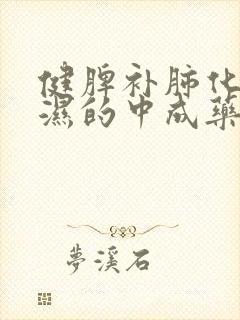 健脾补肺化
湿的中成藥
夢溪石